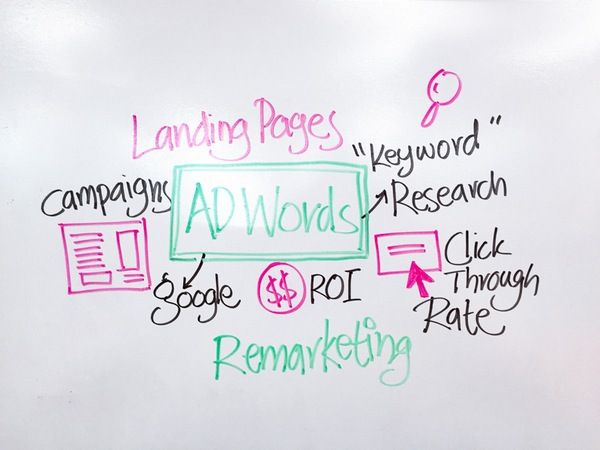 Landing Pages
"Keyword"
Research
Campaigns
AD Words
Click
Through
Rate
google
$$
ROI
Remarketing